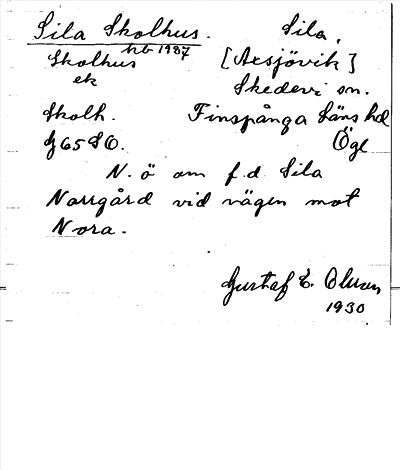 Sila Skolhus. Sila,
hb 1987
Skolhus [Axsjövik]
ek Skedevi sn.
Skolh. Finspånga Läns hd
G65SO. Ögl
N. ö om f.d. Sila
Norrgård vid vägen mot
Nora.
Gustaf E. Olsson
1930